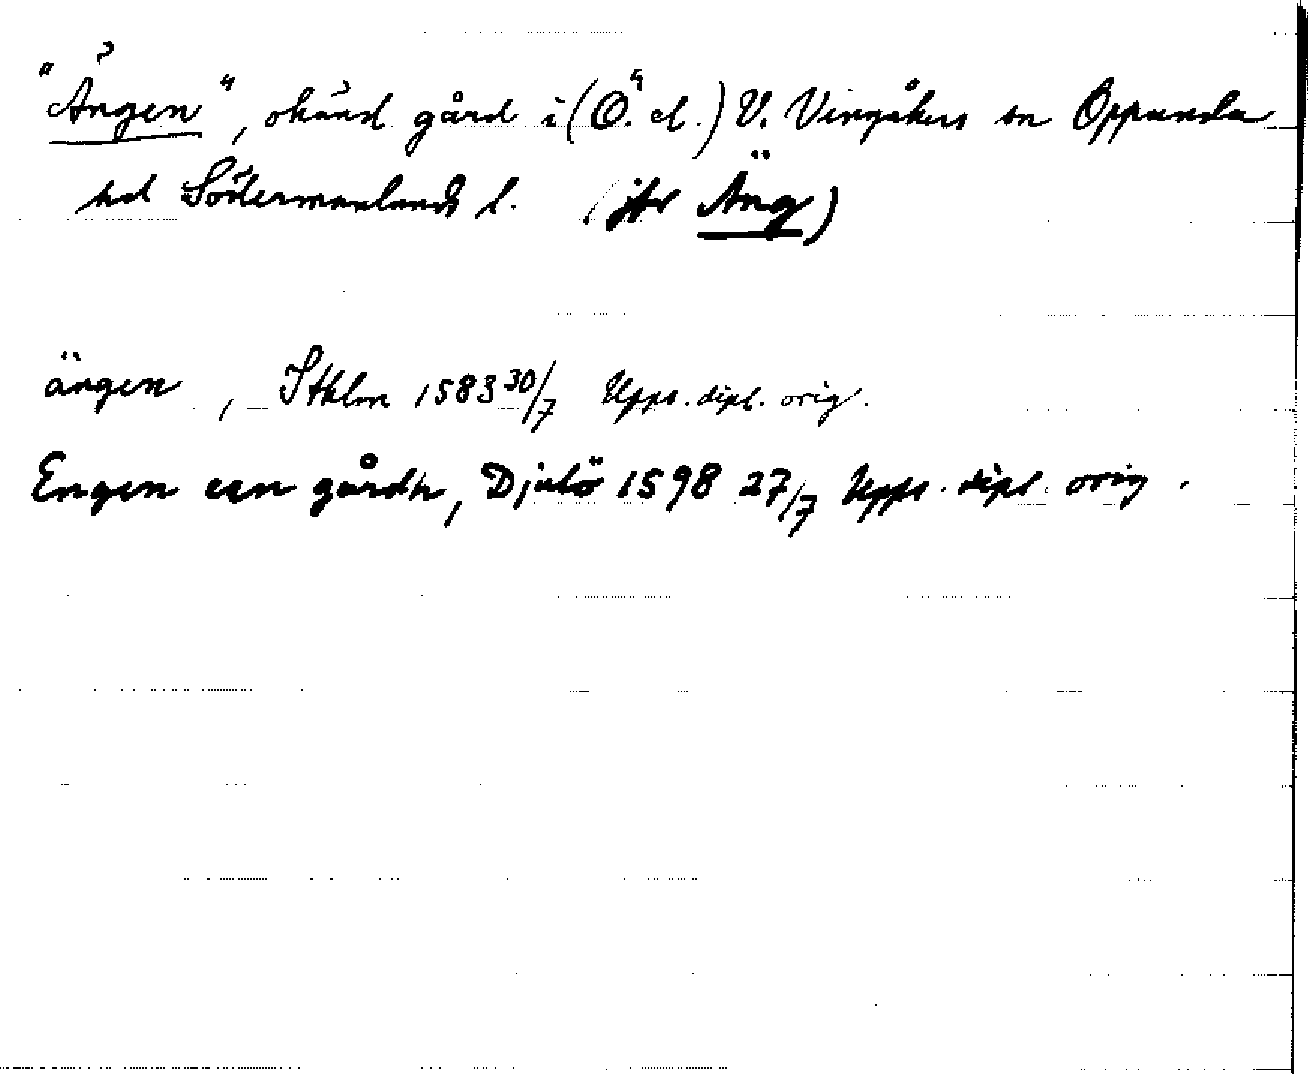 "Ängen", okänd gård i (Ö. el.) V. Vingåkers sn Oppunda
hd Södermanlands l. (jfr Äng)
ängen, Sthlm 1583 30/7 Upps. dipl. orig.
Engen een gårdh, Djulö 1598 27/7 Upps. dipl. orig.